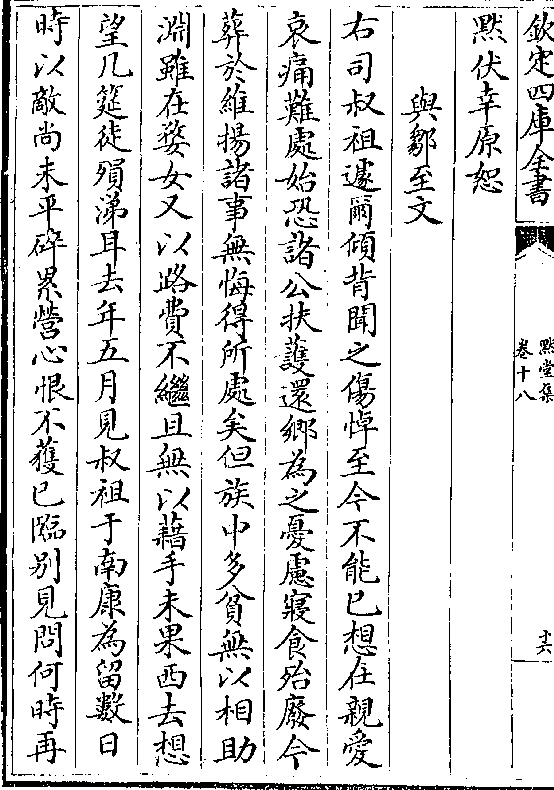 欽定四庫全書
默堂集
卷十八
十六
默伏幸原恕
與鄒至文
右司叔祖遽爾傾背聞之傷悼至今不能已想在親愛
哀痛難處始恐諸公扶䕶還鄉為之憂慮寢食殆廢今
葬於維揚諸事無悔得所處矣但族中多貧無以相助
淵雖在婺女又以路費不繼且無以藉手未果西去想
望几筵徒殞涕耳去年五月見叔祖于南康為留數日
時以敵尚未平碎累營心恨不獲已臨别見問何時再